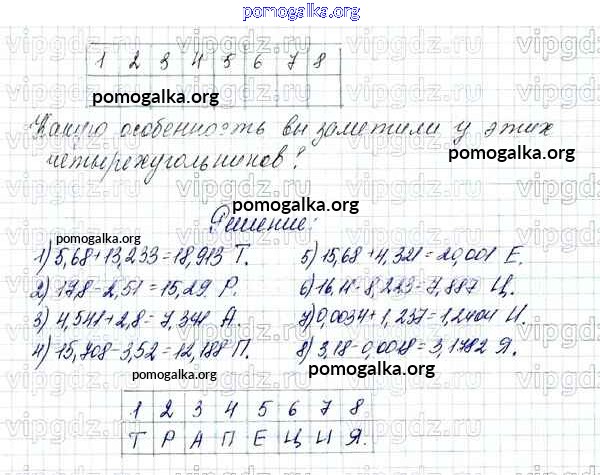 pomogalka.org
1 2 3 4 5 6 7 8
pomogalka.org
Какую особенность вы заметили у этих
pomogalka.org
четырехугольников?
pomogalka.org
Решение:
pomogalka.org
1) 5,68+13,233=18,913 Т.
5) 15,68+4,321=20,001 Е.
2) 17,8-2,51=15,29 Р.
6) 16,11-8,223=7,887 Ц.
3) 4,541+2,8=7,341 А.
7) 0,0034+1,237=1,2404 И.
4) 15,708-3,52=12,188 П.
8) 3,18-0,0018=3,1782 Я.
pomogalka.org
pomogalka.org
1 2 3 4 5 6 7 8
Т Р А П Е Ц И Я.
pomogalka.org
vipgdz.ru